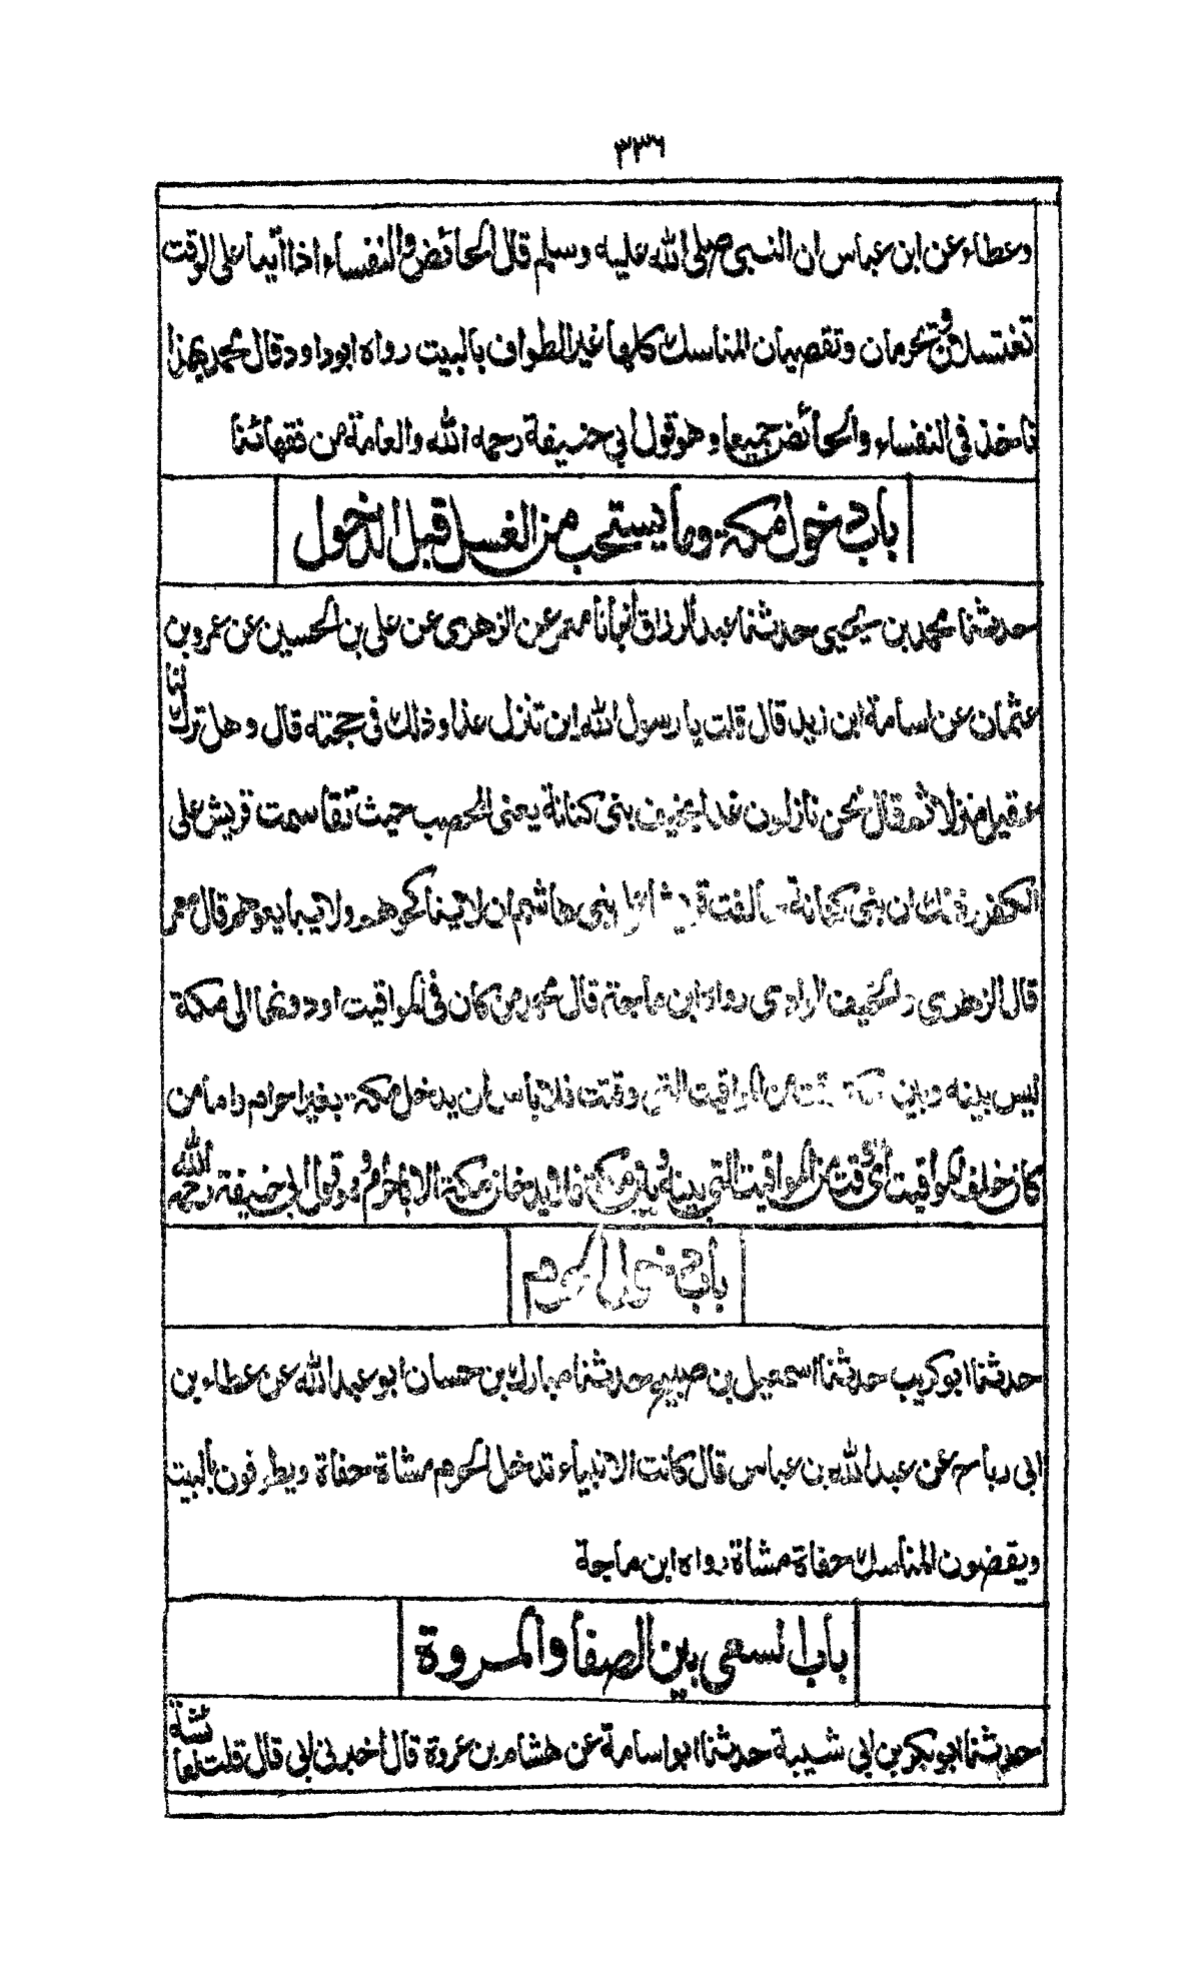 ٣٣٦
وعطاء عن ابن عباس ان النبى صلى الله عليه وسلم قال الحائض والنفساء اذا اتيا على الوقت
تغتسلان وتحرمان وتقضيان المناسك كلها غير الطواف بالبيت رواه ابوداود قال محمد بهذا
ناخذ فى النفساء والحائض جميعا وهو قول ابي حنيفة رحمه الله والعامة من فقهائنا
باب دخول مكة وما يستحب من الغسل قبل الدخول
حدثنا محمد بن يحيى حدثنا عبد الرزاق أنبأنا معمر عن الزهرى عن على بن الحسين عن عمرو بن
عثمان عن اسامة ابن زيد قال قلت يا رسول الله اين تنزل غدا وذلك فى حجته قال وهل ترك لنا
عقيل منزلا ثم قال نحن نازلون غدا بخيف بنى كنانة يعنى المحصب حيث تقاسمت قريش على
الكفر وذلك ان بنى كنانة حالفت قريشا على بنى هاشم ان لا يناكحوهم ولا يبايعوهم قال معمر
قال الزهري والخيف الوادى رواه ابن ماجة قال محمد من كان فى المواقيت او دونها الى مكة
ليس بينه وبين مكة وقت من المواقيت التى وقتت فلا بأس أن يدخل مكة بغير احرام واما من
كان خلف المواقيت أى وقت من المواقيت التى بينه وبين مكة فلا يدخلن مكة الا باحرام وهو قول ابى حنيفة رحمه الله
باب دخول الحرم
حدثنا ابو كريب حدثنا اسمعيل بن صبيح حدثنا مبارك بن حسان ابو عبد الله عن عطاء بن
ابى رباح عن عبد الله بن عباس قال كانت الانبياء تدخل الحرم مشاة حفاة ويطوفون بالبيت
ويقضون المناسك حفاة مشاة رواه ابن ماجة
باب السعى بين الصفا والمروة
حدثنا ابو بكر بن ابى شيبة حدثنا ابو اسامة عن هشام بن عروة قال أخبرنى ابى قال قلت لعائشة